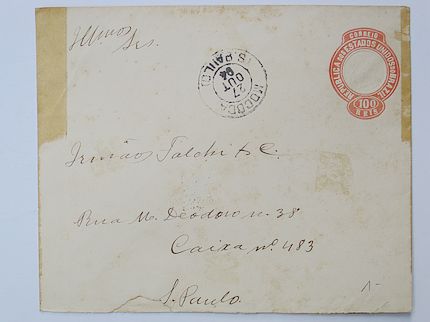 Illmos
Srs.
CORREIO
REPUBLICA DOS ESTADOS UNIDOS DO BRAZIL
100
REIS
MOCOCA
27
OUT
94
(S. PAULO)
Irmãos Falchi & C.
Rua M. Deodoro n. 38
Caixa nº 483
S. Paulo